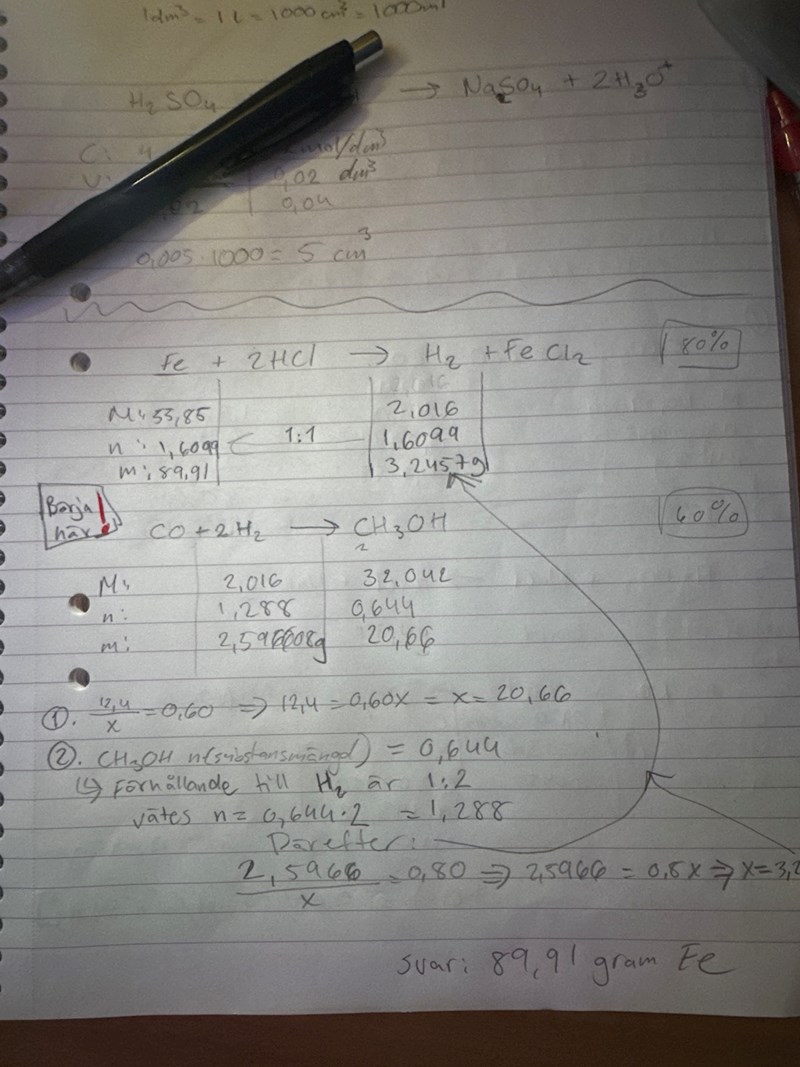 1dm³ = 1L = 1000cm³ = 1000ml
H₂SO₄ → Na₂SO₄ + 2H₃O⁺
C: 4 mol/dm³
V: 0,02 dm³
0,04
0,005·1000 = 5 cm³
Fe + 2HCl → H₂ + FeCl₂ 80%
M: 55,85 2,016
n: 1,6099 1:1 1,6099
m: 89,91 3,2457g
Börja här!
CO + 2H₂ → CH₃OH 60%
M: 2,016 32,042
n: 1,288 0,644
m: 2,596608g 20,66
①. 12,4/x = 0,60 ⇒ 12,4 = 0,60x = x = 20,66
②. CH₃OH n(substansmängd) = 0,644
↳ Förhållande till H₂ är 1:2
vätes n = 0,644·2 = 1,288
Därefter:
2,5966/x = 0,80 ⇒ 2,5966 = 0,8x ⇒ x = 3,2
svar: 89,91 gram Fe